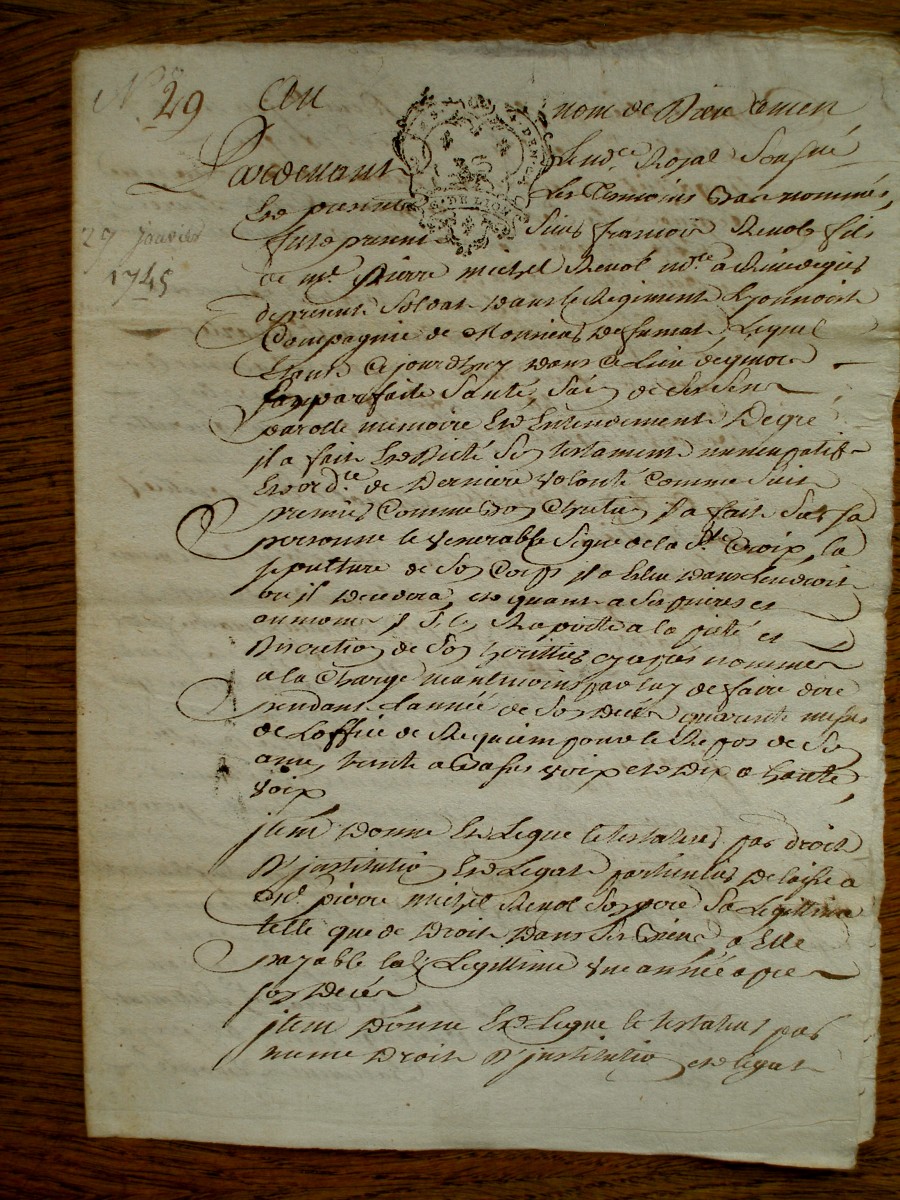 N.° 29
29 Janvier
1745
Au nom de Dieu Amen
Pardevant Le no.re Royal Sousné
Et en presence des Temoins bas nommés,
fut present Sieur francois Renol fils
de m.r Pierre michel Renol no.re a
a present Soldat dans le Regiment Lyonnois
Compagnie de Monsieur Defumat Lequel
Etant Ce jourdhuy dans Ce Lieu
parfaite Santé, Sain de Ses Sens
parolle memoire Et Entendement De gré
il a fait Et Dicté Son testament nuncupatif
Et ord.ce de Derniere Volonté Comme Suit
premier Comme bon Chretien il a fait Sur sa
personne le Venerable Signe de la S.te Croix, la
sepulture de Son Corps il a Elue dans Lendroit
ou il Decedera, et quant a Ses prieres et
aumones il S'en Raporte a la pieté et
Discretion de Son heritier cy apres nommé
a la Charge neantmoins par luy de faire dire
pendant Lannée de Son Deces quarante messes
de Loffice de Requiem pour le Repos de Son
ame, trente a basses voix et Dix a haute
voix
item Donne Et Legue le testateur par droit
D'institution Et Legat particulier Delaisse a
m.r pierre michel Renol Son pere Sa Legittime
telle que de Droit dans Ses biens, a Elle
payable lad. Legittime une année apres
son Deces
item Donne Et Legue le testateur par
meme Droit D'institution et Legat